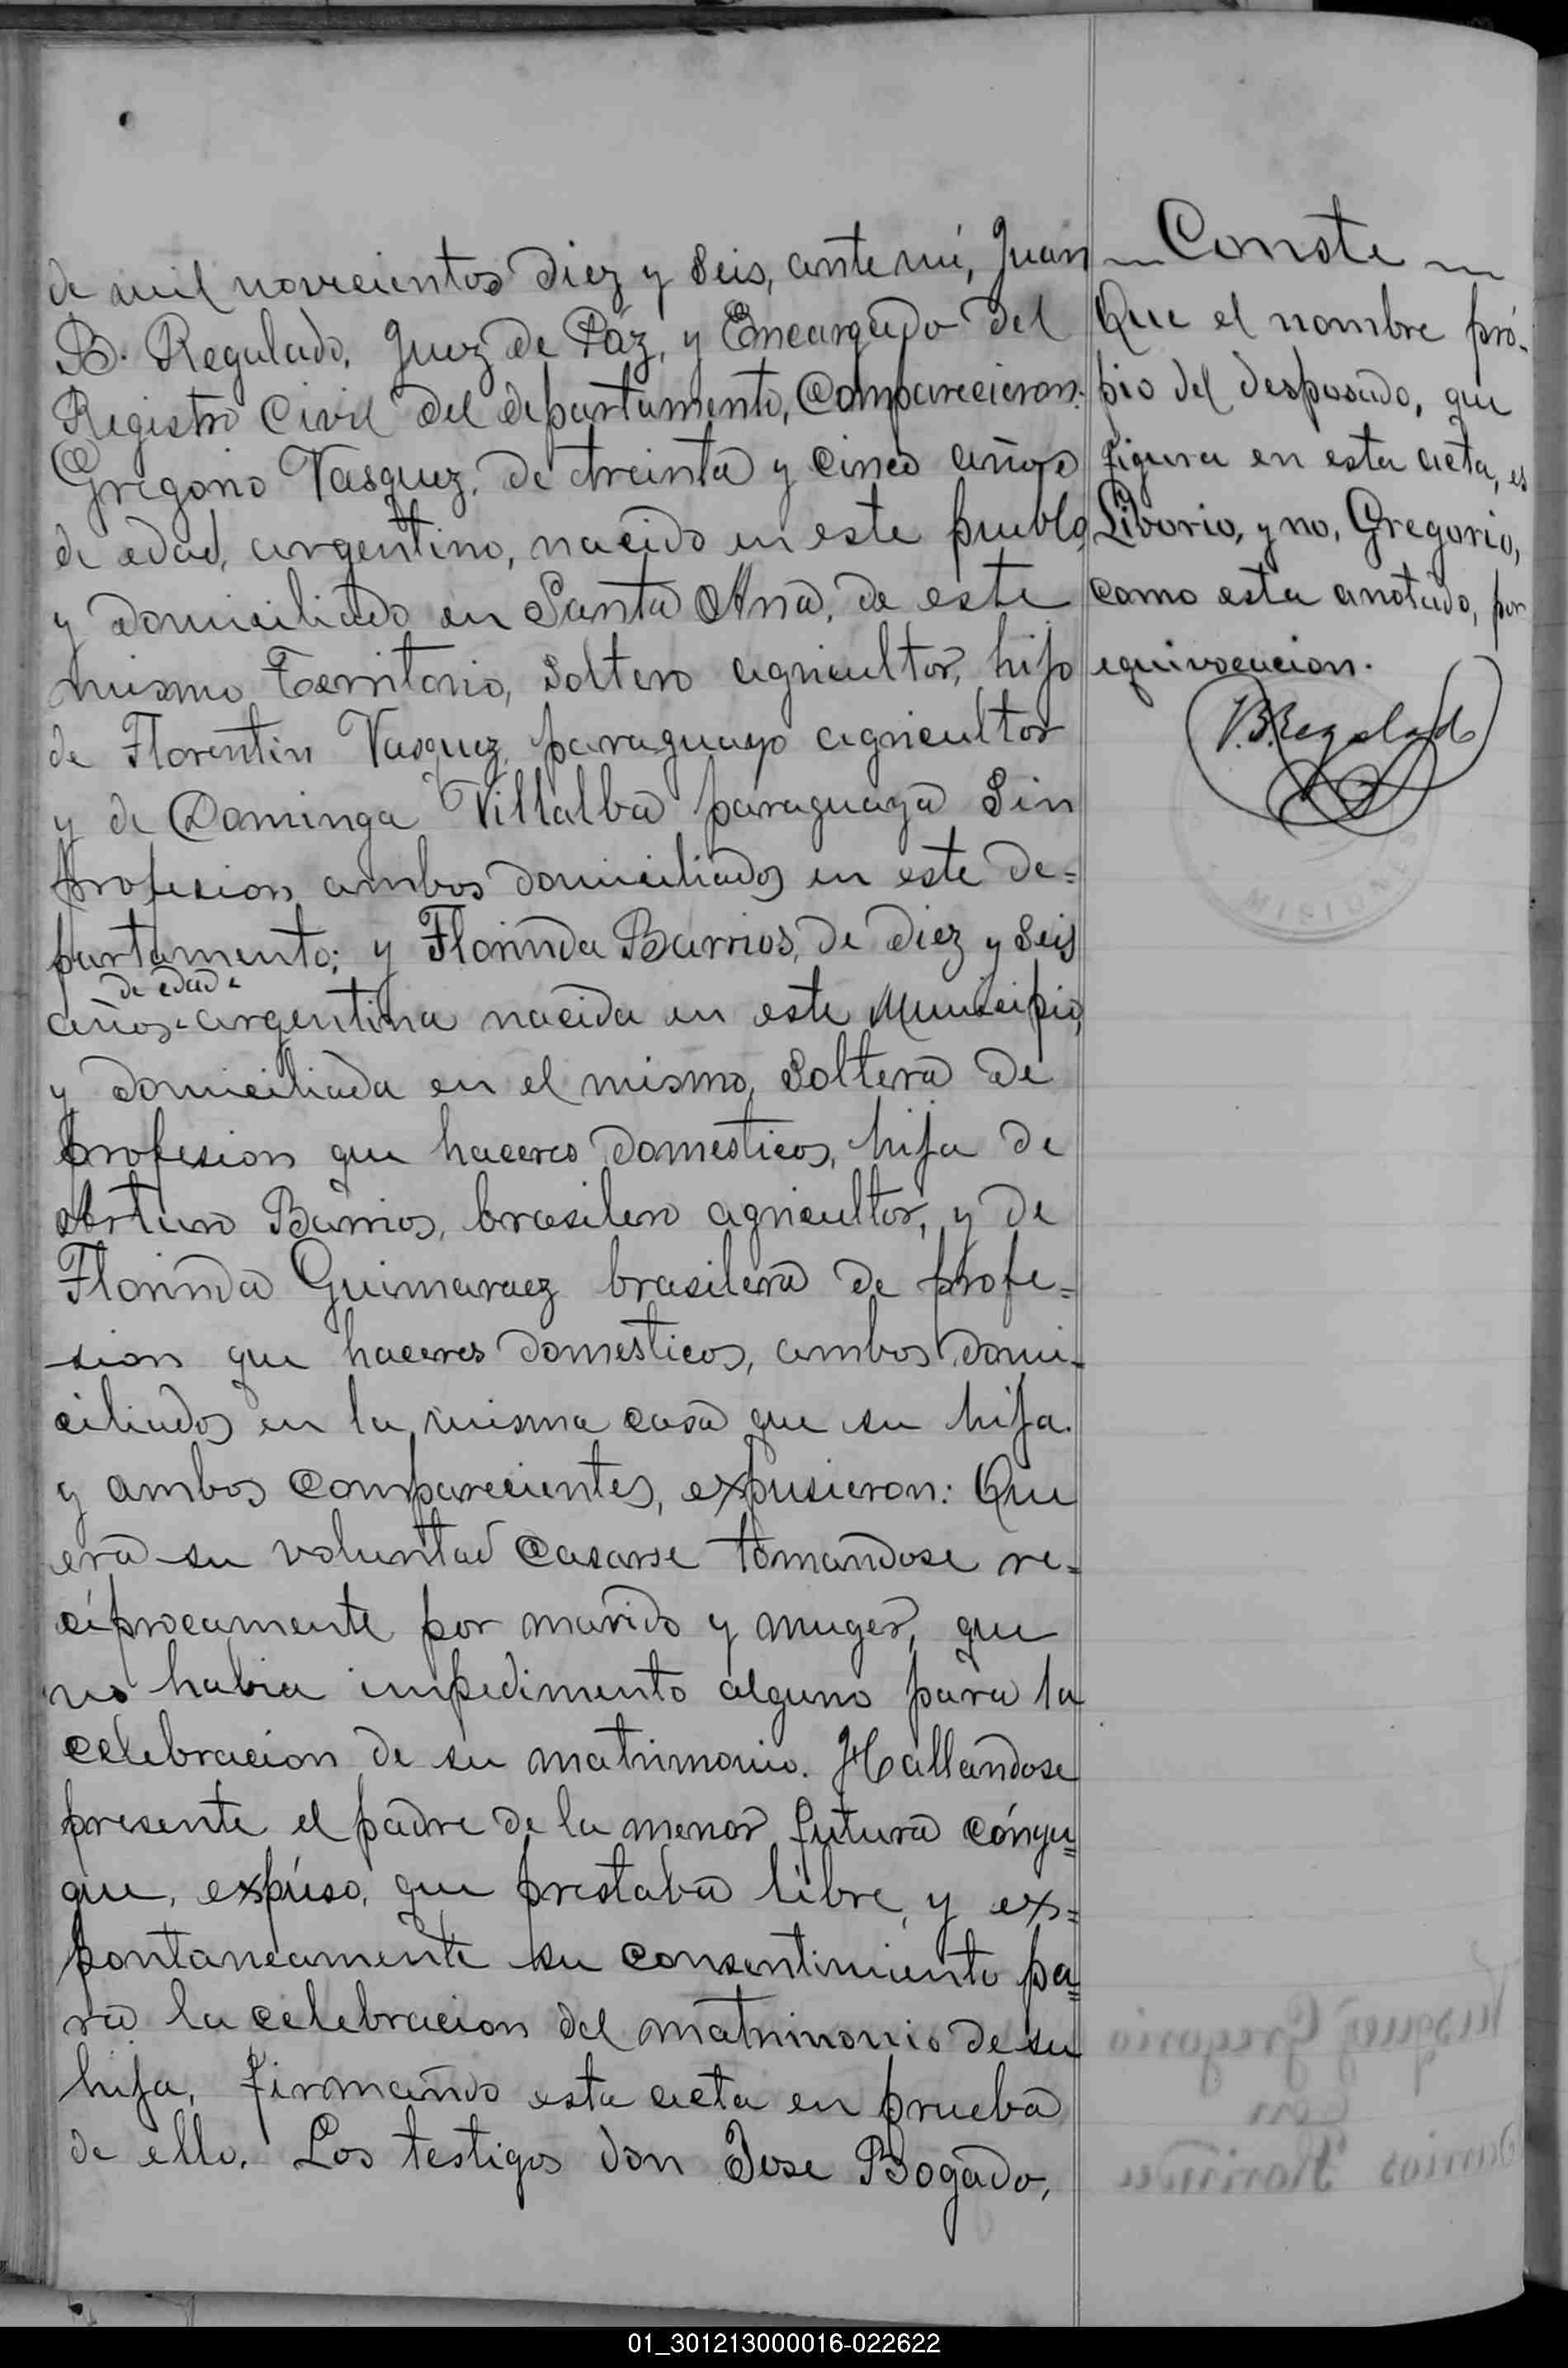 de mil novecientos diez y seis, ante mí, Juan
B. Regulado, Juez de Páz, y Encargado del
Registro Civil del departamento, Comparecieron:
Gregorio Vasquez, de treinta y cinco años
de edad, argentino, nacido en este pueblo,
y domiciliado en Santa Ana, de este
mismo Territorio, soltero agricultor, hijo
de Florentin Vasquez, paraguayo agricultor
y de Dominga Villalba paraguaya sin
profesion, ambos domiciliados en este de=
partamento; y Florinda Barrios, de diez y seis
de edad
años argentina nacida en este Municipio,
y domiciliada en el mismo, soltera de
profesion que haceres domesticos, hija de
Arturo Barrios, brasilero agricultor, y de
Florinda Guimaraez brasilera de profe=
sion que haceres domesticos, ambos domi-
ciliados en la misma casa que su hija.
y ambos comparecientes, expusieron: Que
era su voluntad casarse tomandose re=
cíprocamente por marido y muger, que
no habia impedimento alguno para la
celebracion de su matrimonio. Hallandose
presente el padre de la menor futura cónyu=
gue, expúso, que prestaba libre, y ex=
pontaneamente su consentimiento pa=
ra la celebracion del matrimonio de su
hija, firmando esta acta en prueba
de ello. Los testigos don Jose Bogado,
Conste
Que el nombre pró-
pio del desposado, que
figura en esta acta, es
Liborio, y no, Gregorio,
como esta anotado, por
equivocacion.
J.B. Regalado
MISIONES
Vasquez Gregorio
con
Barrios Florinda
01_301213000016-022622